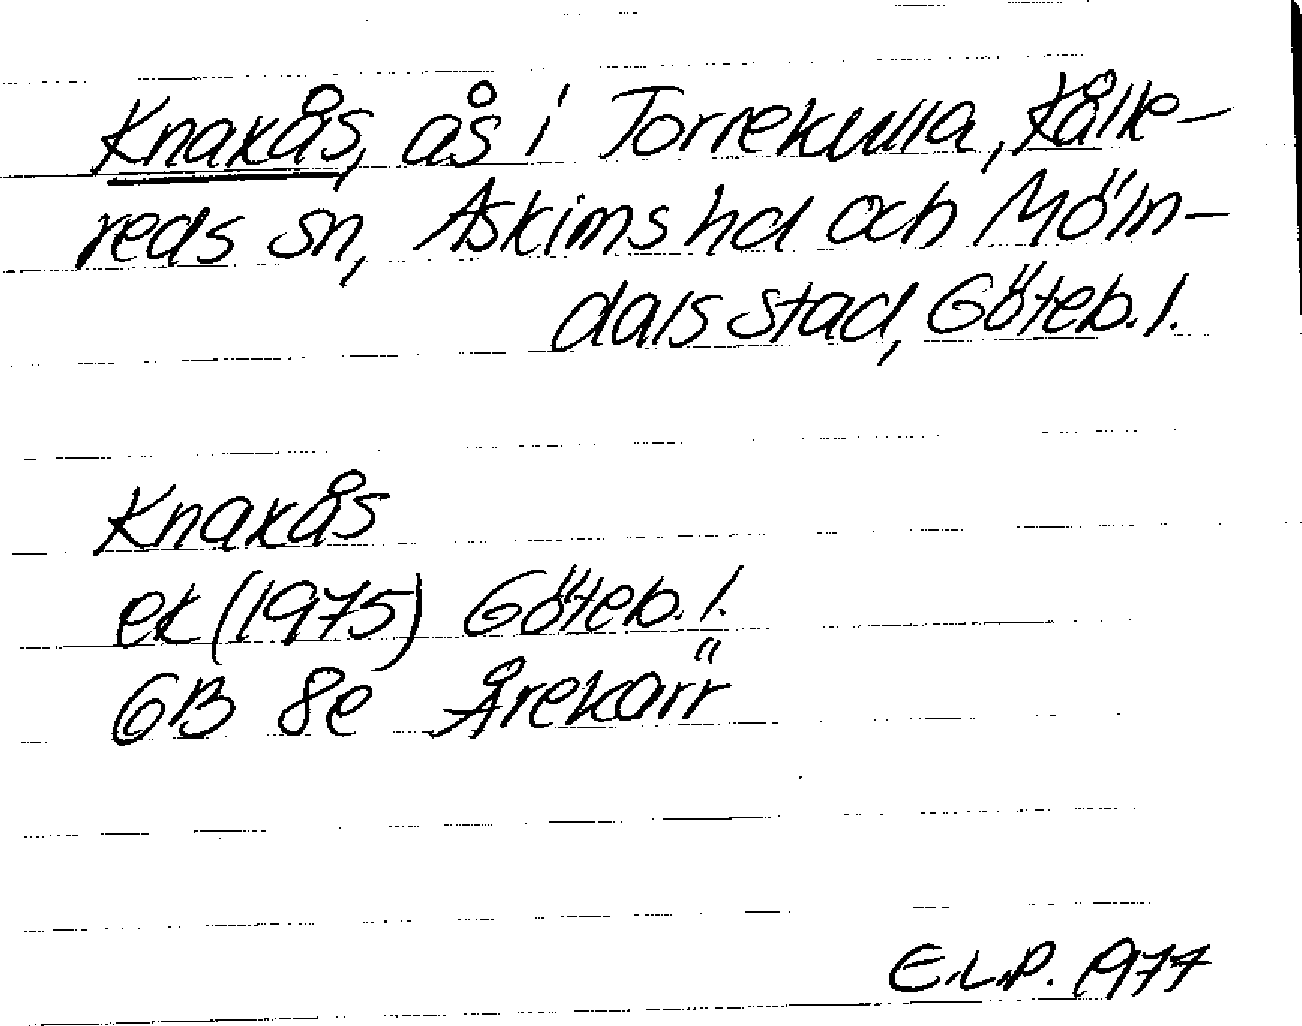 Knaxås, ås i Torrekulla, Kålle-
reds sn, Askims hd och Möln-
dals stad, Göteb. l.
Knaxås
ek (1975) Göteb. l.
GB 8e Årekärr
E.L.P. 1977